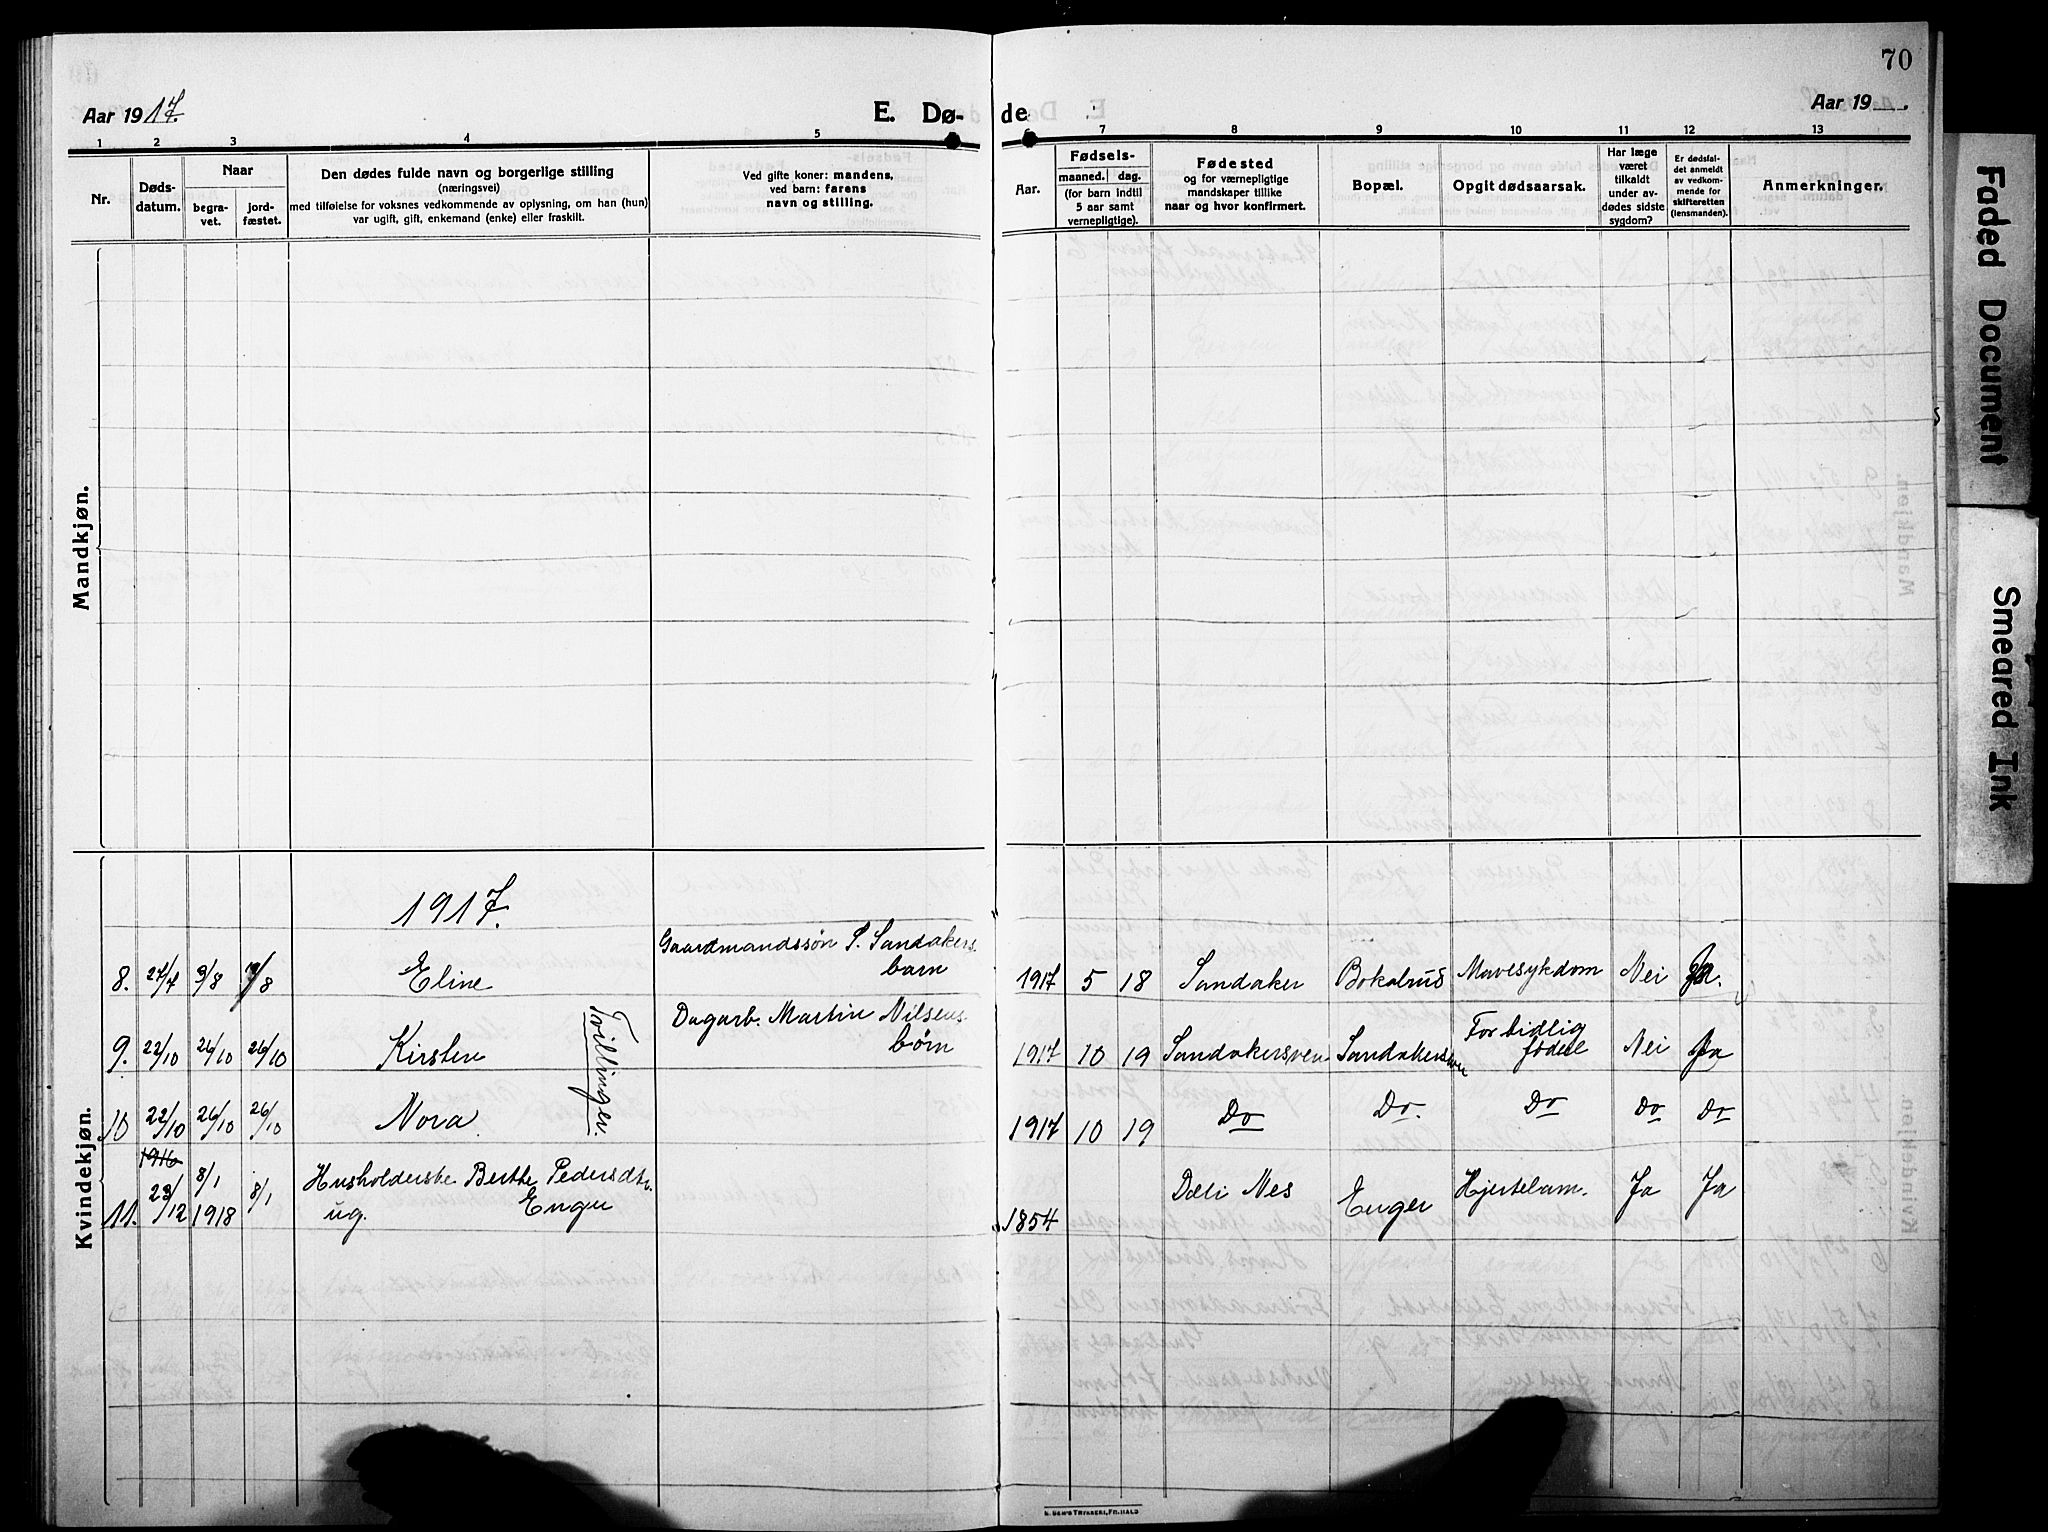 70
Aar 1917.
E. Dø-
de
Aar 19
1 2 3 4 5 6 7 8 9 10 11 12 13
Nr.
Døds-
datum.
Naar
begra-
vet.
jord-
fæstet.
Den dødes fulde navn og borgerlige stilling
(næringsvei)
med tilføielse for voksnes vedkommende av oplysning, om han (hun)
var ugift, gift, enkemand (enke) eller fraskilt.
Ved gifte koner: mandens,
ved barn: farens
navn og stilling.
Aar.
Fødsels-
maaned. dag.
(for barn indtil
5 aar samt
vernepligtige).
Fødested
og for værnepligtige
mandskaper tillike
naar og hvor konfirmert.
Bopæl.
Opgit dødsaarsak.
Har læge
været
tilkaldt
under av-
dødes sidste
sygdom?
Er dødsfal-
det anmeldt
av vedkom-
mende for
skifteretten
(lensmanden).
Anmerkninger.
Mandkjøn.
Kvindekjøn.
1917.
Gaardmandssøn P. Sandakers
barn
8. 27/7 3/8 3/8 Eline 1917 5 18 Sandaker Bokalrud Mavesykdom Nei Ja.
Tvillinger.
Dagarb. Martin Nilsens
børn
For tidlig
født
9. 22/10 26/10 26/10 Kirsten 1917 10 19 Sandakersven Sandakersven Nei Ja
10 22/10 26/10 26/10 Nora. 1917 10 19 Do Do. Do Do Do
1916
23/12
8/1
1918
8/1
11. Husholderske Berthe Pedersdtr.
ug. Enger
1854 Dæli Nes Enger Hjertelam. Ja Ja
Faded Document
Smeared Ink